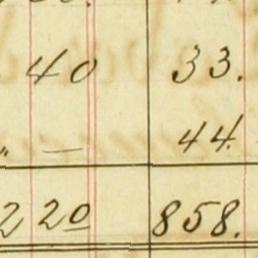 40 33.
" — 44.
220 858.